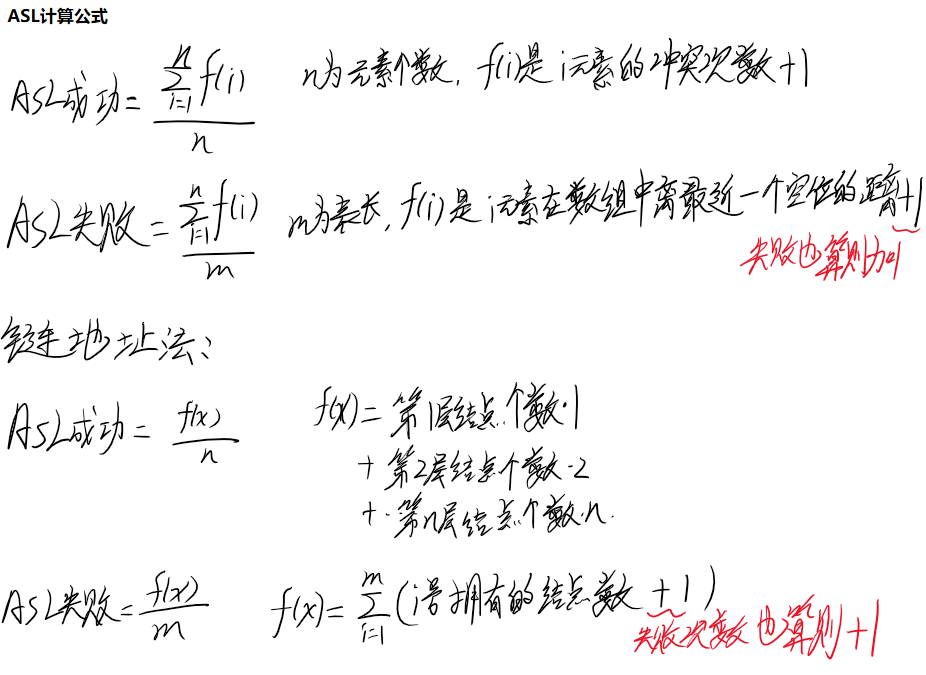 ASL计算公式
ASL成功 = \frac{\sum_{i=1}^{n} f(i)}{n} n为元素个数, f(i)是i元素的冲突次数+1
ASL失败 = \frac{\sum_{i=1}^{n} f(i)}{m} m为表长, f(i)是i元素在数组中离最近一个空位的距离+1
失败也算则加1
链地址法:
ASL成功 = \frac{f(x)}{n} f(x) = 第1层结点个数·1
+ 第2层结点个数·2
+ ·第n层结点个数·n.
ASL失败 = \frac{f(x)}{m} f(x) = \sum_{i=1}^{m} (i号拥有的结点数 + 1)
失败次数也算则+1